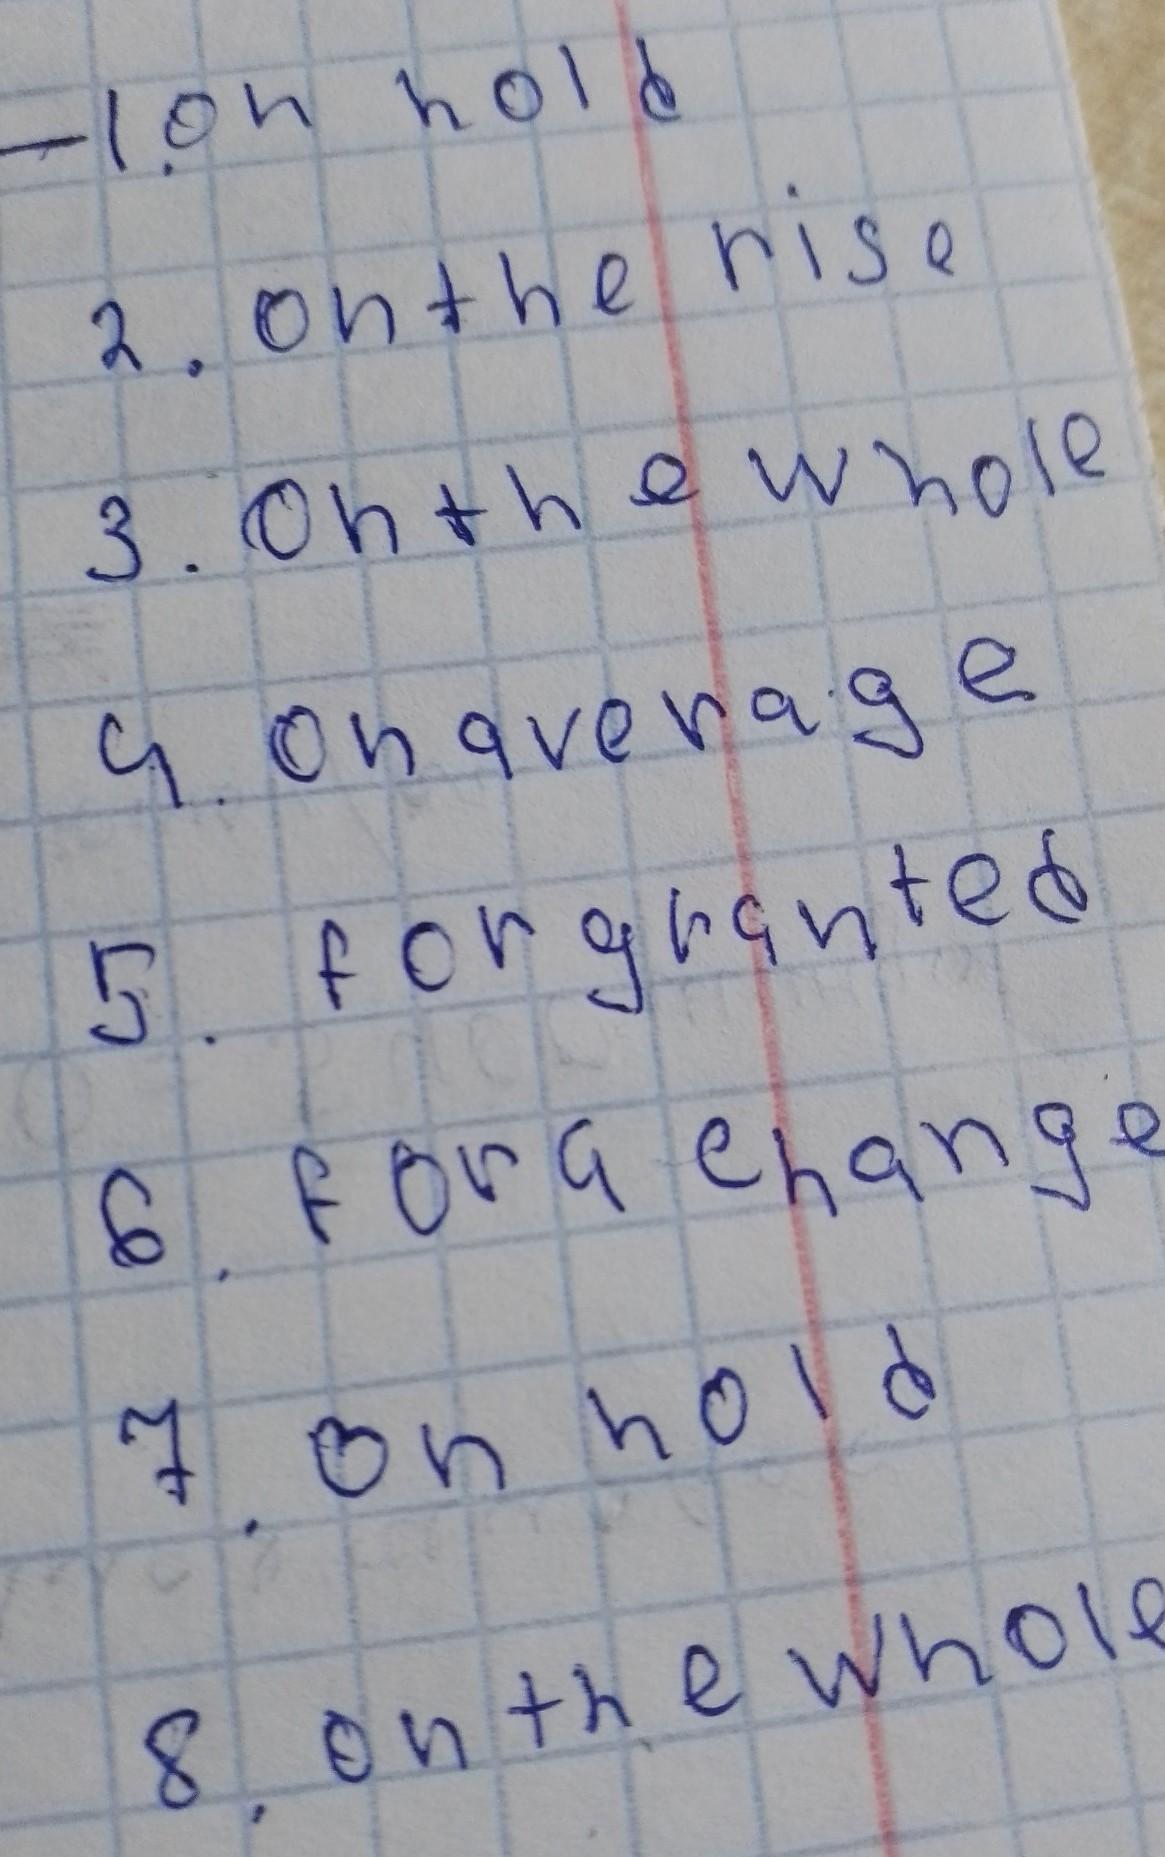 1. on hold
2. on the rise
3. on the whole
4. on average
5. for granted
6. for a change
7. on hold
8. on the whole